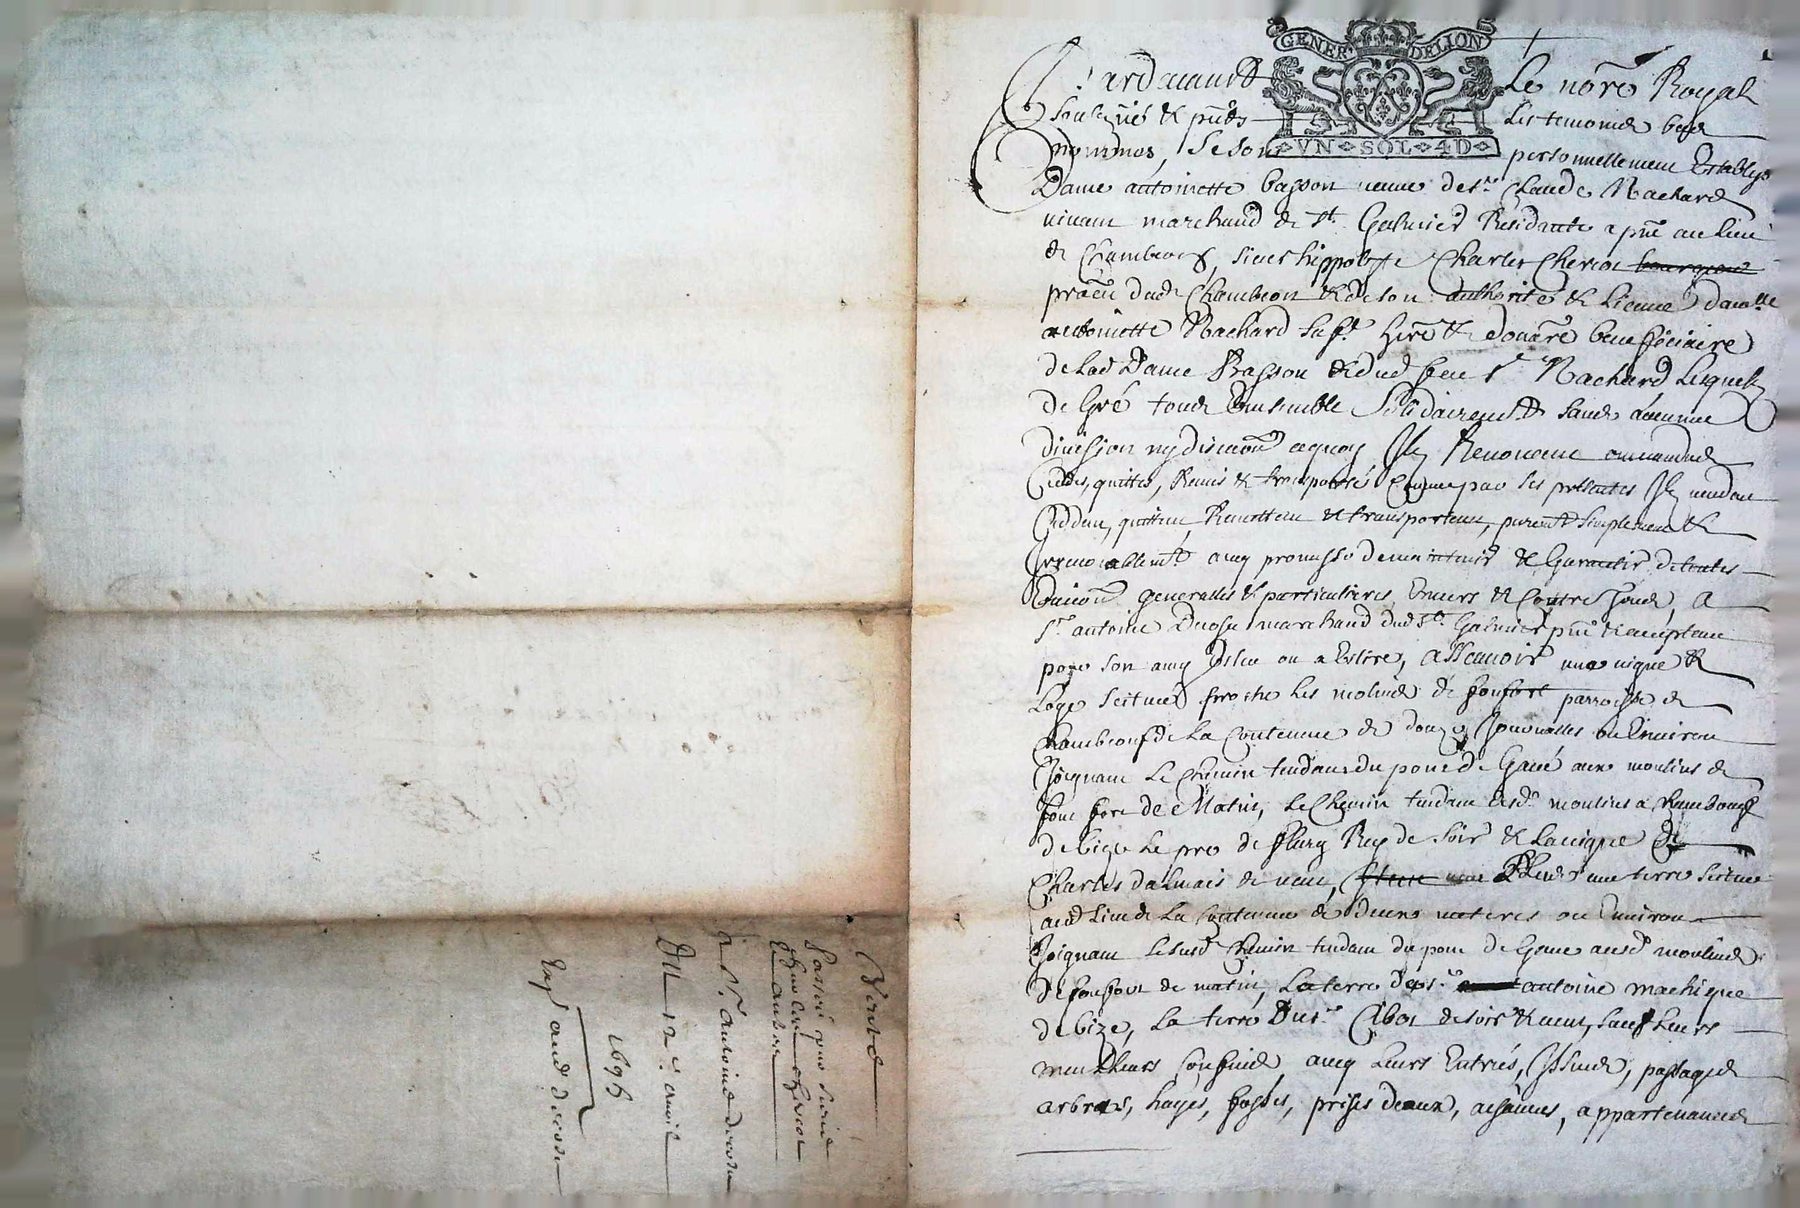 GENER DELION
VN SOL 4D
Pardevant Le nore Royal
soubsigné & pnts Les temoins bas
nommes, se sont personnellement Establys
Dame antoinette basson veuve de sr Claude Rachard
vivant marchand de st Galmier Residante a pnt au lieu
de Chambeons, sieur hippolyte Charles Cheriot bourgeois
dud Chambeon & de son authorité & Licence damlle
antoinette Rachard sa fe & donare beneficiaire
de lad Dame Basson & dud feu sr Rachard Lesquels
de Gré tous Ensemble solidairemt sans aucune
division ny discon a quoy Ils Renoncent ont vendus
Ceddés, quittés, Remis & transportés Comme par les presentes Ils vendent
Ceddent, quittent, Remettent & transportent, puremt simplement &
Irrevocablemt avq promesse de maintenir & Garantir de toutes
generalles & particulieres Envers & Contre tous, A
sr antoine marchand dud st Galmier pnt & acceptant
pour son amy Eslu ou a Eslire, assavoir une vigne &
Loge scituée proche les molins de fonfort parroisse de
Chambeouf de la Contenue de douze Journalles ou Environ
Joignant Le chemin tendant du pont de Gavé aux moulins de
fonfort de Matin, Le chemin tendant desd moulins a Chambeouf
de bize Le pré de fleury Rey de soir & la vigne de
Charles dalmais de vent, Item une Plus une terre scituée
aud Lieu de La Contenue de deux meteres ou Environ
Joignant Le susd chemin tendant du pont de Gave ausd moulins
de fonfort de matin, La terre de sr antoine machique
de bize, La terre du sr Cibot de soir & vent, sauf Leurs
meilleurs Confins avq Leurs Entrées, Issues, passages
arbres, hayes, fossés, prises deaux, aisances, appartenances
Vente
Passée par sieur
hipolite cheriot
& autres
a sr antoine
Du 12e avril
1696